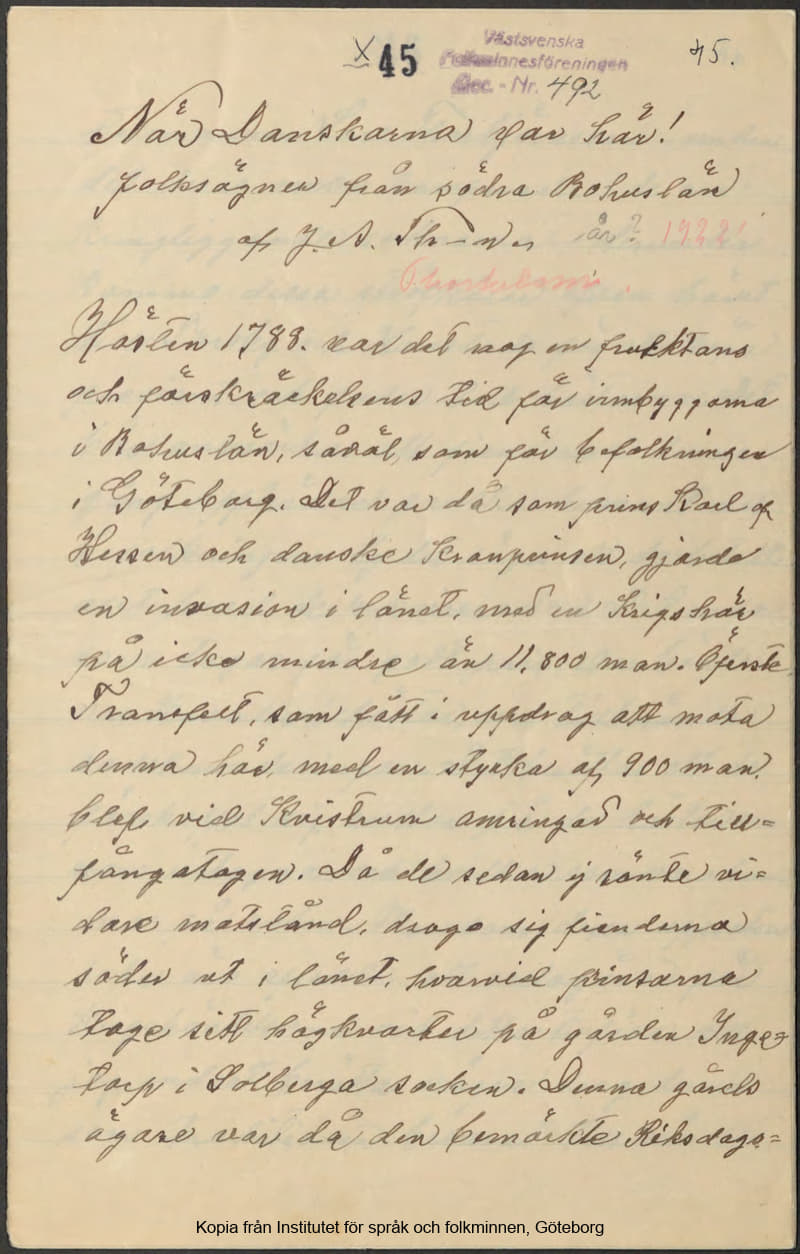 X 45
Västsvenska
Folkminnesföreningen
Acc. - Nr. 492
45.
När Danskarna var här!
folksägner från södra Bohuslän
af J. A. Th-n. år? 1922!
Hösten 1788. var det nog en fruktans
och förskräckelsens tid för innbyggarna
i Bohuslän, såväl som för befolkningen
i Göteborg. Det var då som prins Karl af
Hessen och danske Kronprinsen, gjorde
en invasion i länet, med en Krigshär
på icke mindre än 11,800 man. Öfverste
Transfelt, som fått i uppdrag att möta
denna här, med en styrka af 900 man.
blef vid Kvistrum omringad och till=
fångatagen. Då de sedan ej rönte vi=
dare motstånd, drogo sig fienderna
söder ut i länet, hvarvid prinsarna
togo sitt högkvarter på gården Inge=
torp i Solberga socken. Denna gårds
ägare var då den bemärkte Riksdags=
Kopia från Institutet för språk och folkminnen, Göteborg